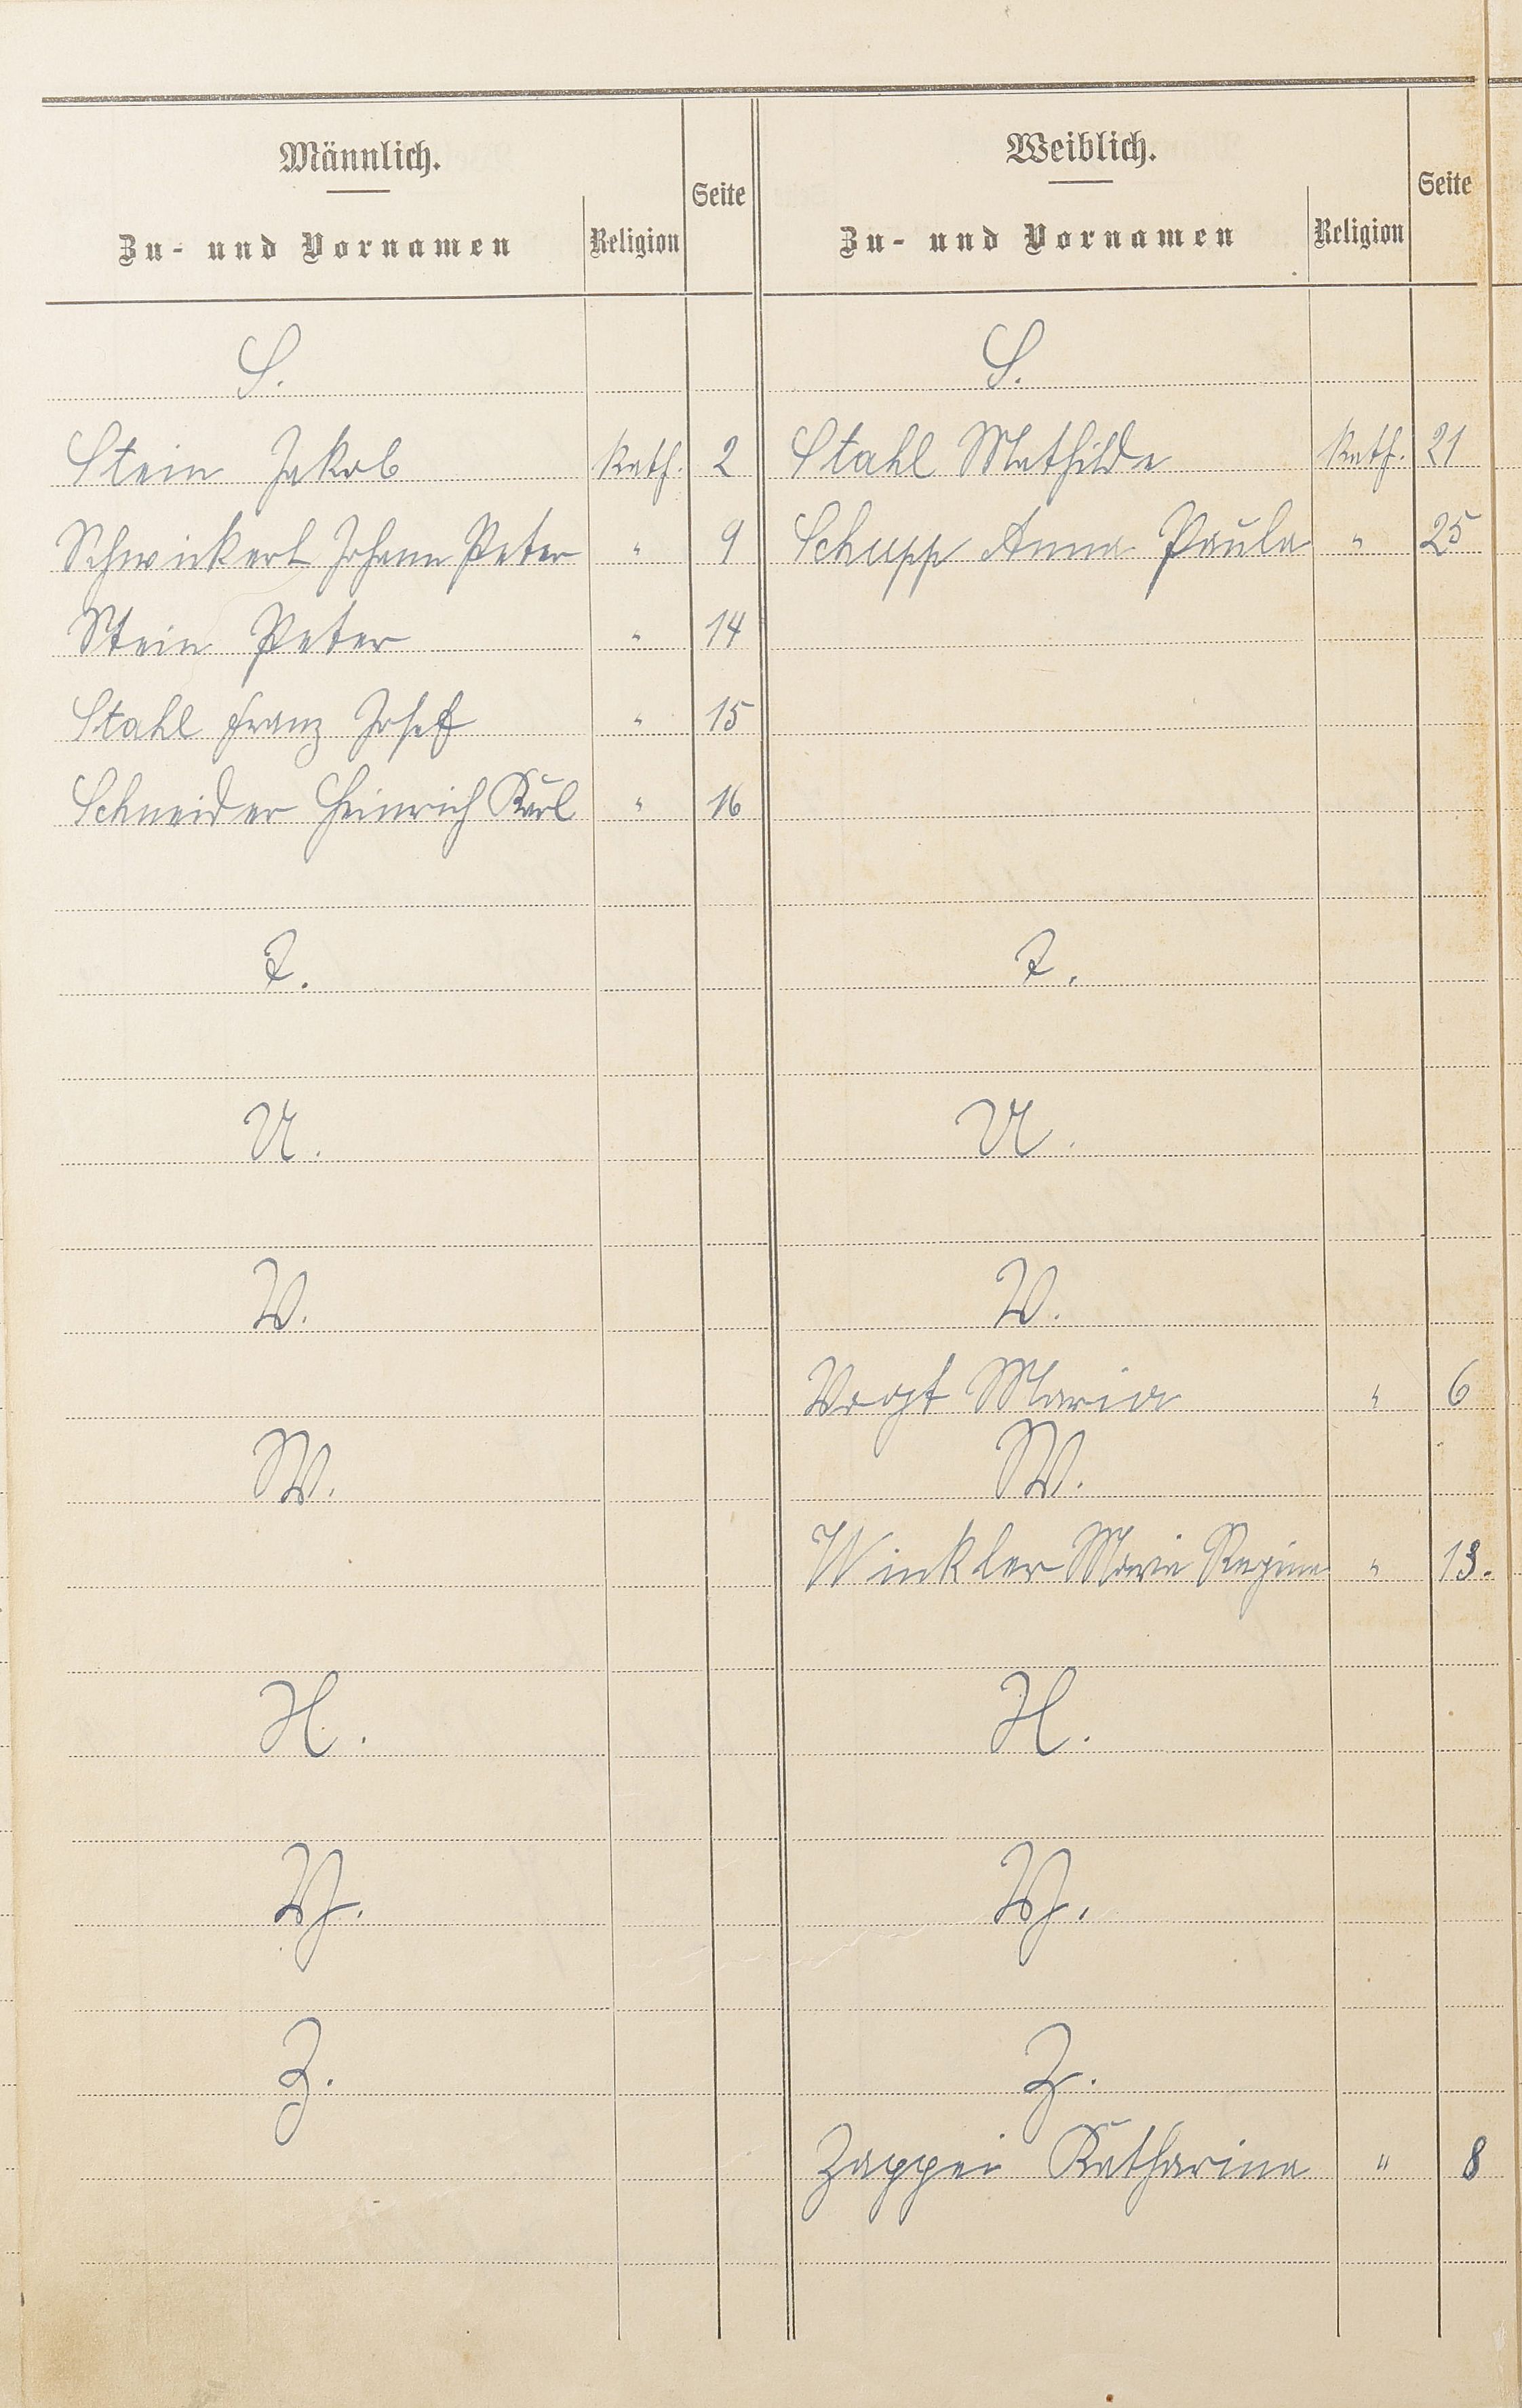 Männlich.
Zu- und Vornamen Religion Seite
S.
Stein Jakob Kath. 2
Schwickert Johann Peter " 9
Stein Peter " 14
Stahl Franz Josef " 15
Schneider Heinrich Karl " 16
T.
U.
V.
W.
X.
Y.
Z.
Weiblich.
Zu- und Vornamen Religion Seite
S.
Stahl Mathilde Kath. 21
Schupp Anna Paula " 25
T.
U.
V.
Vogt Maria " 6
W.
Winkler Maria Regina " 13.
X.
Y.
Z.
Zappei Katharina " 8